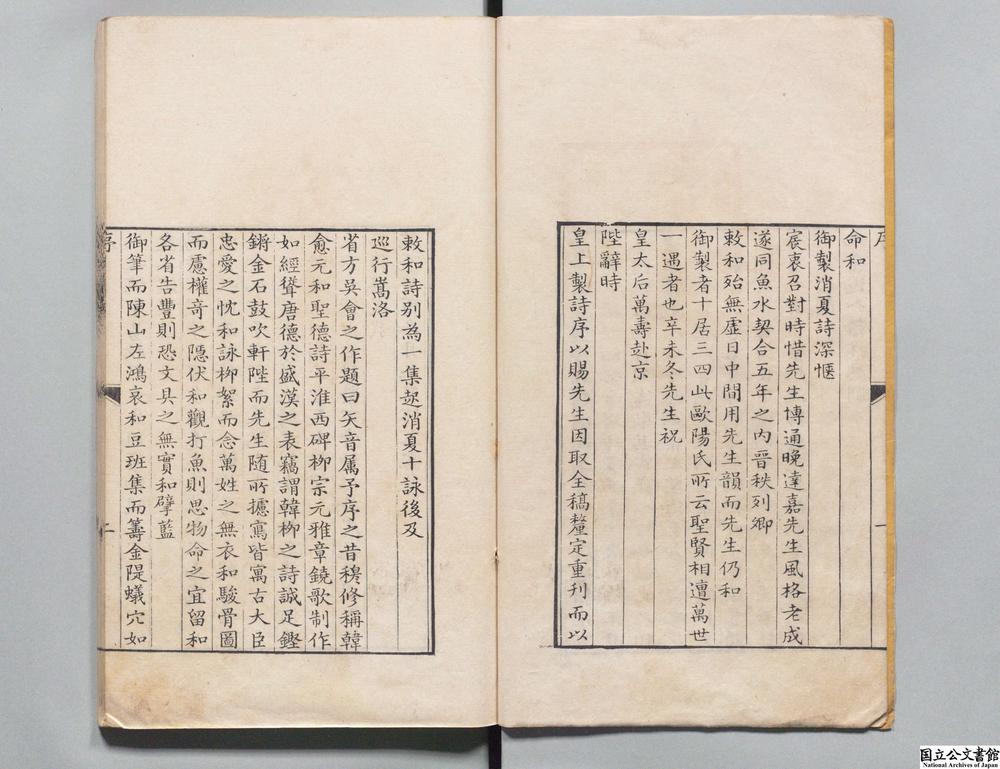 命和
御製消夏詩深愜
宸衷召對時惜先生博通晚達嘉先生風格老成
遂同魚水契合五年之内晉秩列卿
敕和殆無虛日中間用先生韻而先生仍和
御製者十居三四此歐陽氏所云聖賢相遭萬世
一遇者也辛未冬先生祝
皇太后萬壽赴京
陛辭時
皇上製詩序以賜先生因取全稿釐定重刊而以
敕和詩别為一集起消夏十詠後及
巡行嵩洛
省方吳會之作題曰矢音属予序之昔穆修稱韓
愈元和聖德詩平淮西碑柳宗元雅章鐃歌制作
如經聳唐德於盛漢之表竊謂韓柳之詩誠足鏗
鏘金石鼓吹軒陛而先生随所攄寫皆寓古大臣
忠愛之忱和詠柳絮而念萬姓之無衣和駿骨圖
而慮權竒之隱伏和觀打魚則思物命之宜留和
各省告豐則恐文具之無實和擘藍
御筆而陳山左鴻哀和豆班集而籌金隄蟻穴如
序
二
一
国立公文書館
National Archives of Japan